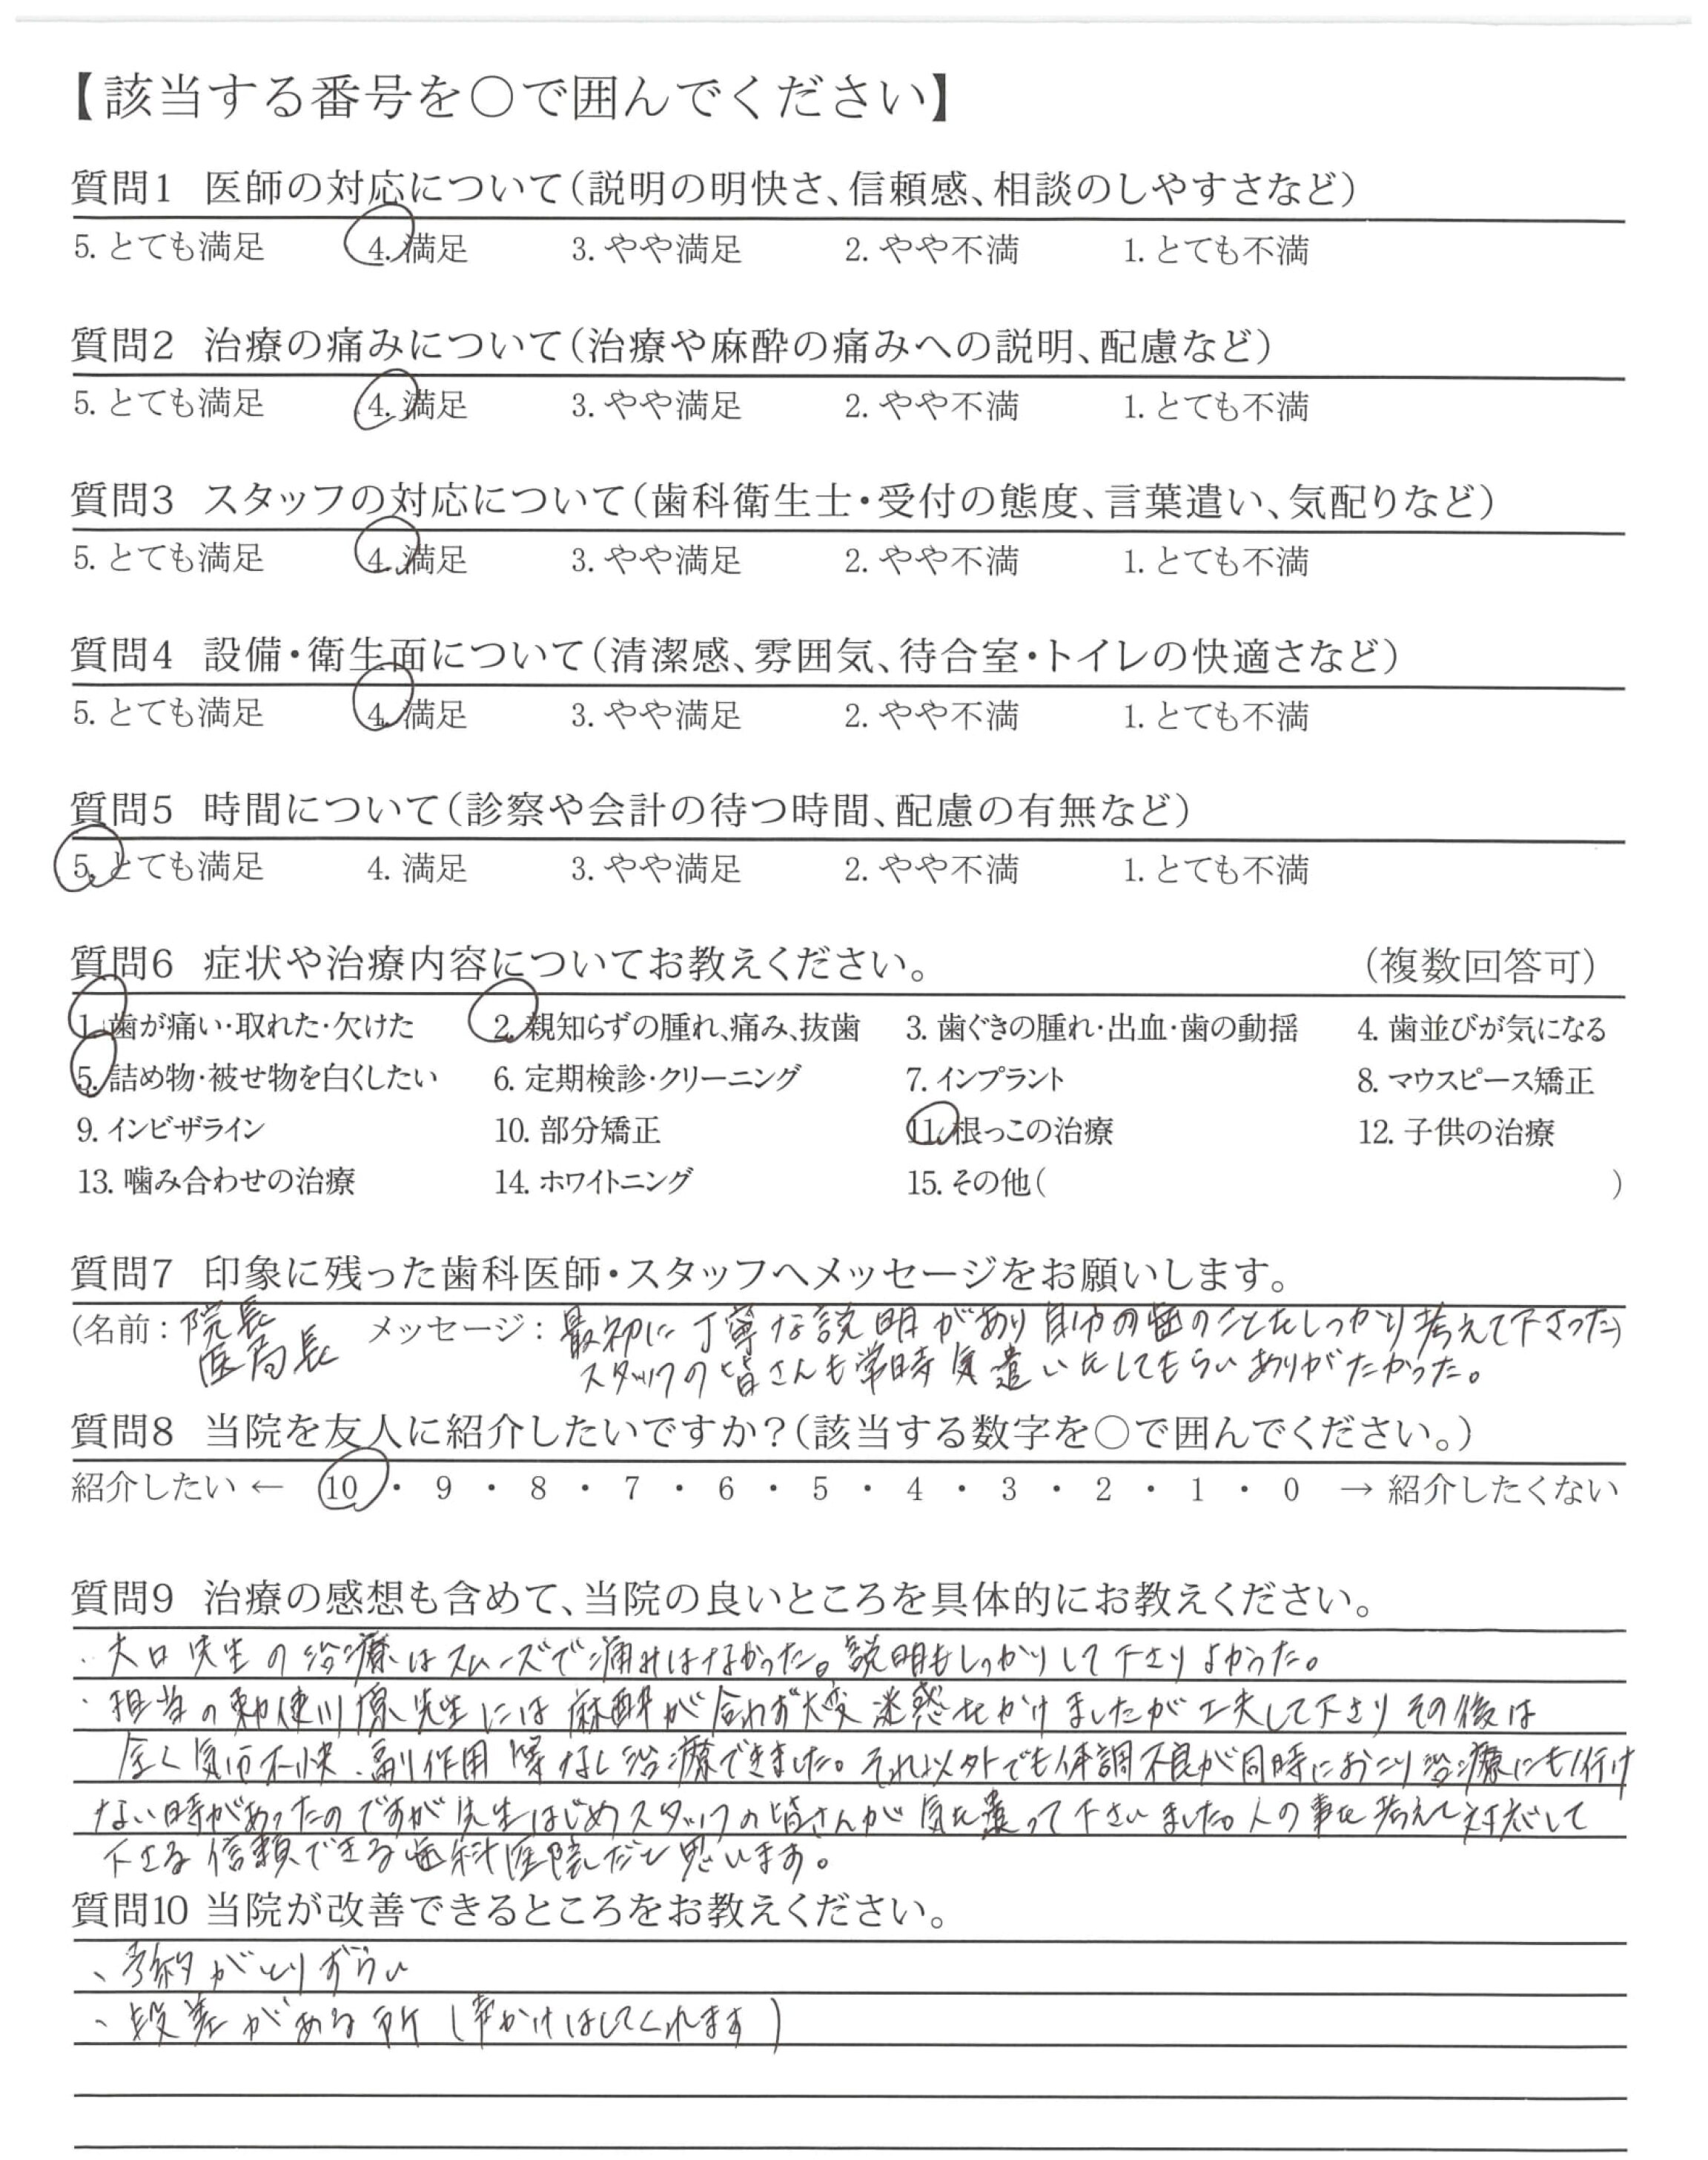 【該当する番号を○で囲んでください】
質問1 医師の対応について(説明の明快さ、信頼感、相談のしやすさなど)
5. とても満足 4. 満足 3. やや満足 2. やや不満 1. とても不満
質問2 治療の痛みについて(治療や麻酔の痛みへの説明、配慮など)
5. とても満足 4. 満足 3. やや満足 2. やや不満 1. とても不満
質問3 スタッフの対応について(歯科衛生士・受付の態度、言葉遣い、気配りなど)
5. とても満足 4. 満足 3. やや満足 2. やや不満 1. とても不満
質問4 設備・衛生面について(清潔感、雰囲気、待合室・トイレの快適さなど)
5. とても満足 4. 満足 3. やや満足 2. やや不満 1. とても不満
質問5 時間について(診察や会計の待つ時間、配慮の有無など)
5. とても満足 4. 満足 3. やや満足 2. やや不満 1. とても不満
質問6 症状や治療内容についてお教えください。 (複数回答可)
1. 歯が痛い・取れた・欠けた 2. 親知らずの腫れ、痛み、抜歯 3. 歯ぐきの腫れ・出血・歯の動揺 4. 歯並びが気になる
5. 詰め物・被せ物を白くしたい 6. 定期検診・クリーニング 7. インプラント 8. マウスピース矯正
9. インビザライン 10. 部分矯正 11. 根っこの治療 12. 子供の治療
13. 噛み合わせの治療 14. ホワイトニング 15. その他( )
質問7 印象に残った歯科医師・スタッフへメッセージをお願いします。
(名前: 院長 メッセージ: 最初に丁寧な説明があり自分の歯のことをしっかり考えて下さった)
医局長 スタッフの皆さんも常時気遣いをしてもらいありがたかった。
質問8 当院を友人に紹介したいですか?(該当する数字を○で囲んでください。)
紹介したい ← 10 ・ 9 ・ 8 ・ 7 ・ 6 ・ 5 ・ 4 ・ 3 ・ 2 ・ 1 ・ 0 → 紹介したくない
質問9 治療の感想も含めて、当院の良いところを具体的にお教えください。
・大口先生の治療はスムーズで痛みはなかった。説明もしっかりして下さりよかった。
・担当の勅使川原先生には麻酔が合わず大変迷惑をかけましたが工夫して下さりその後は
全く気分不快、副作用等なし治療できました。それ以外でも体調不良が同時におこり治療にも行け
ない時があったのですが先生はじめスタッフの皆さんが気を遣って下さいました。人の事を考えて対応して
下さる信頼できる歯科医院だと思います。
質問10 当院が改善できるところをお教えください。
、予約がとりずらい
、段差がある所(声かけはしてくれます)